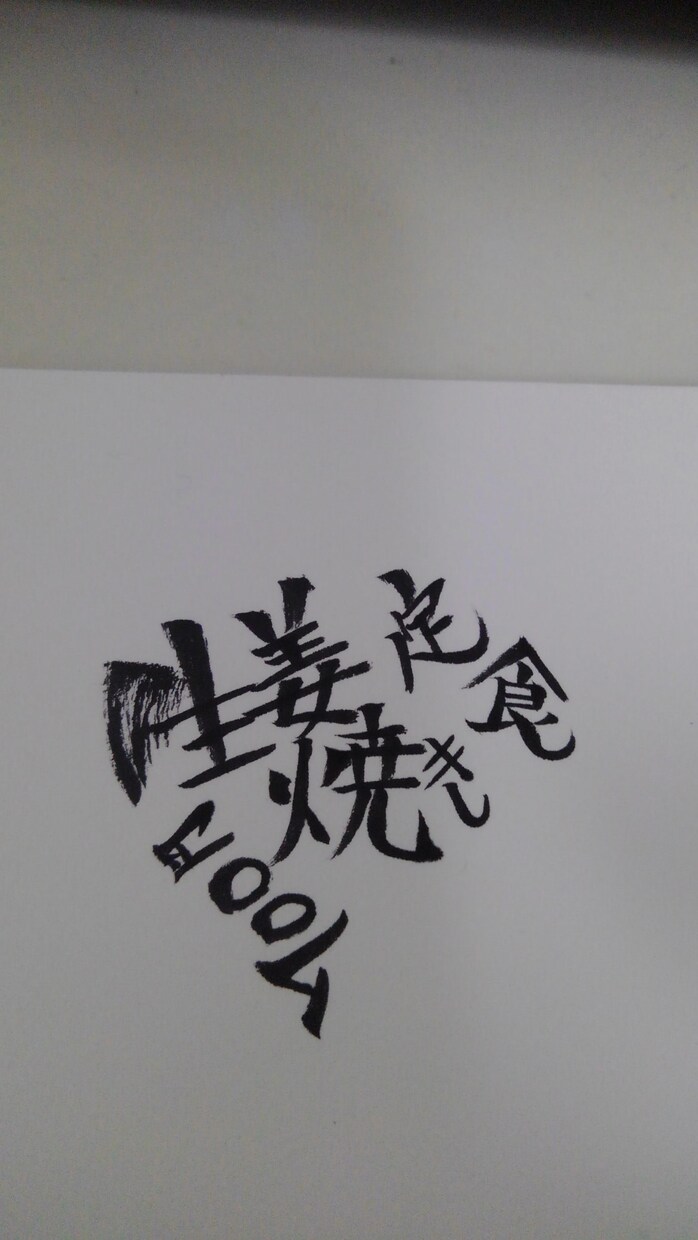 生姜焼き定食
700円